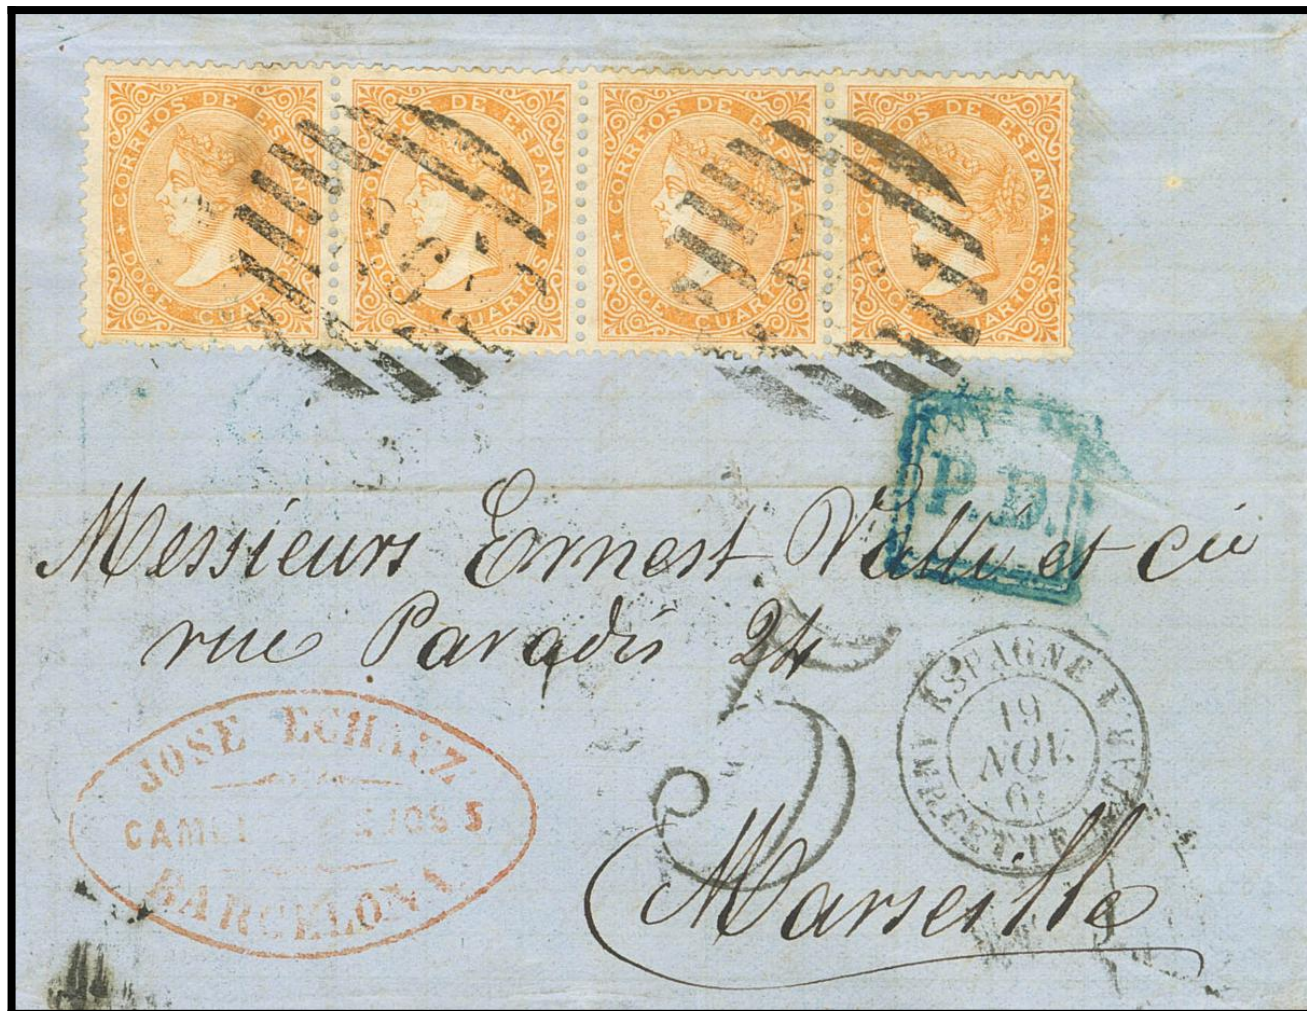 CORREOS DE ESPAÑA
DOCE CUARTOS
DE ESPAÑA
CUARTOS
CORREOS DE ESPAÑA
DOCE CUARTOS
DE ESPAÑA
DOCE CUARTOS
P.D.
Messieurs Ernest et cie
rue Paradis 24
5
ESPAGNE
19
NOV.
JOSE
BARCELONA
Marseille